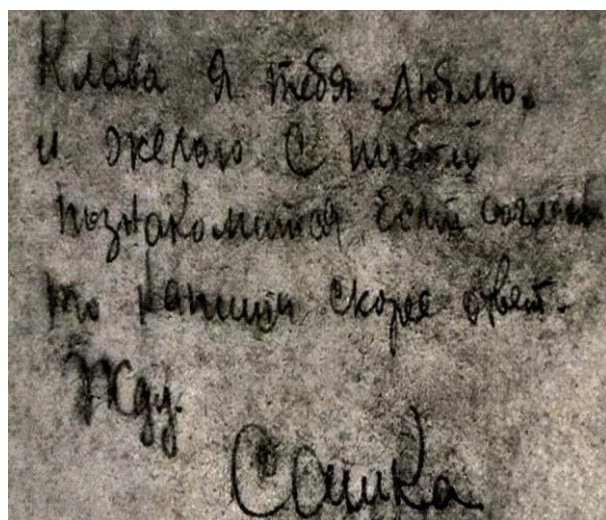 Клава я тебя люблю.
и желаю с тобой
познакомится Если
то напиши скорее ответ.
Жду.
Сашка